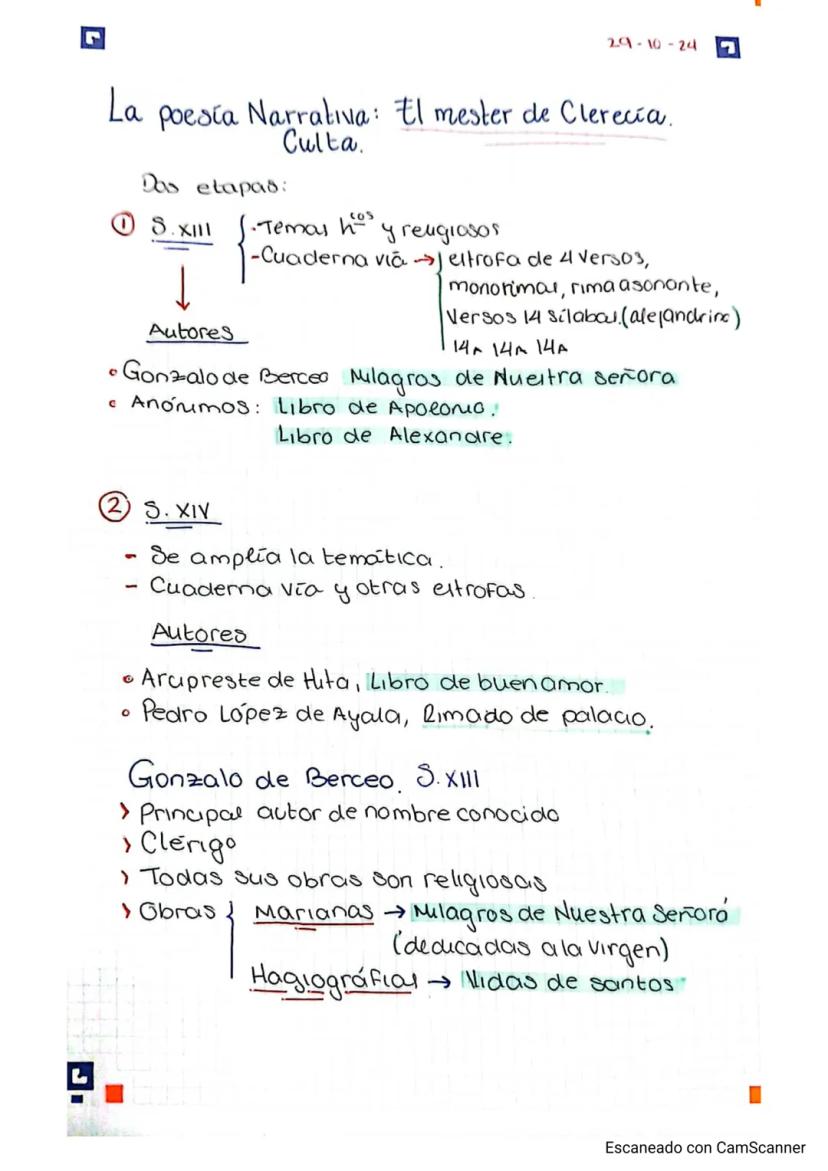 29-10-24
La poesía Narrativa: El mester de Clerecía.
Culta.
Dos etapas:
① S. XIII { -Temas hcos y religiosos
-Cuaderna vía → { estrofa de 4 versos,
monorimas, rima asonante,
versos 14 sílabas. (alejandrino)
14A 14A 14A
Autores
• Gonzalo de Berceo Milagros de Nuestra señora
• Anónimos: Libro de Apolonio.
Libro de Alexandre.
② S. XIV
- Se amplía la temática.
- Cuaderna vía y otras estrofas.
Autores
• Arcipreste de Hita, Libro de buen amor.
• Pedro López de Ayala, Rimado de palacio.
Gonzalo de Berceo. S. XIII
> Principal autor de nombre conocido
> Clérigo
> Todas sus obras son religiosas
> Obras { Marianas → Milagros de Nuestra Señora
(dedicadas a la virgen)
Hagiográficas → Vidas de santos
Escaneado con CamScanner